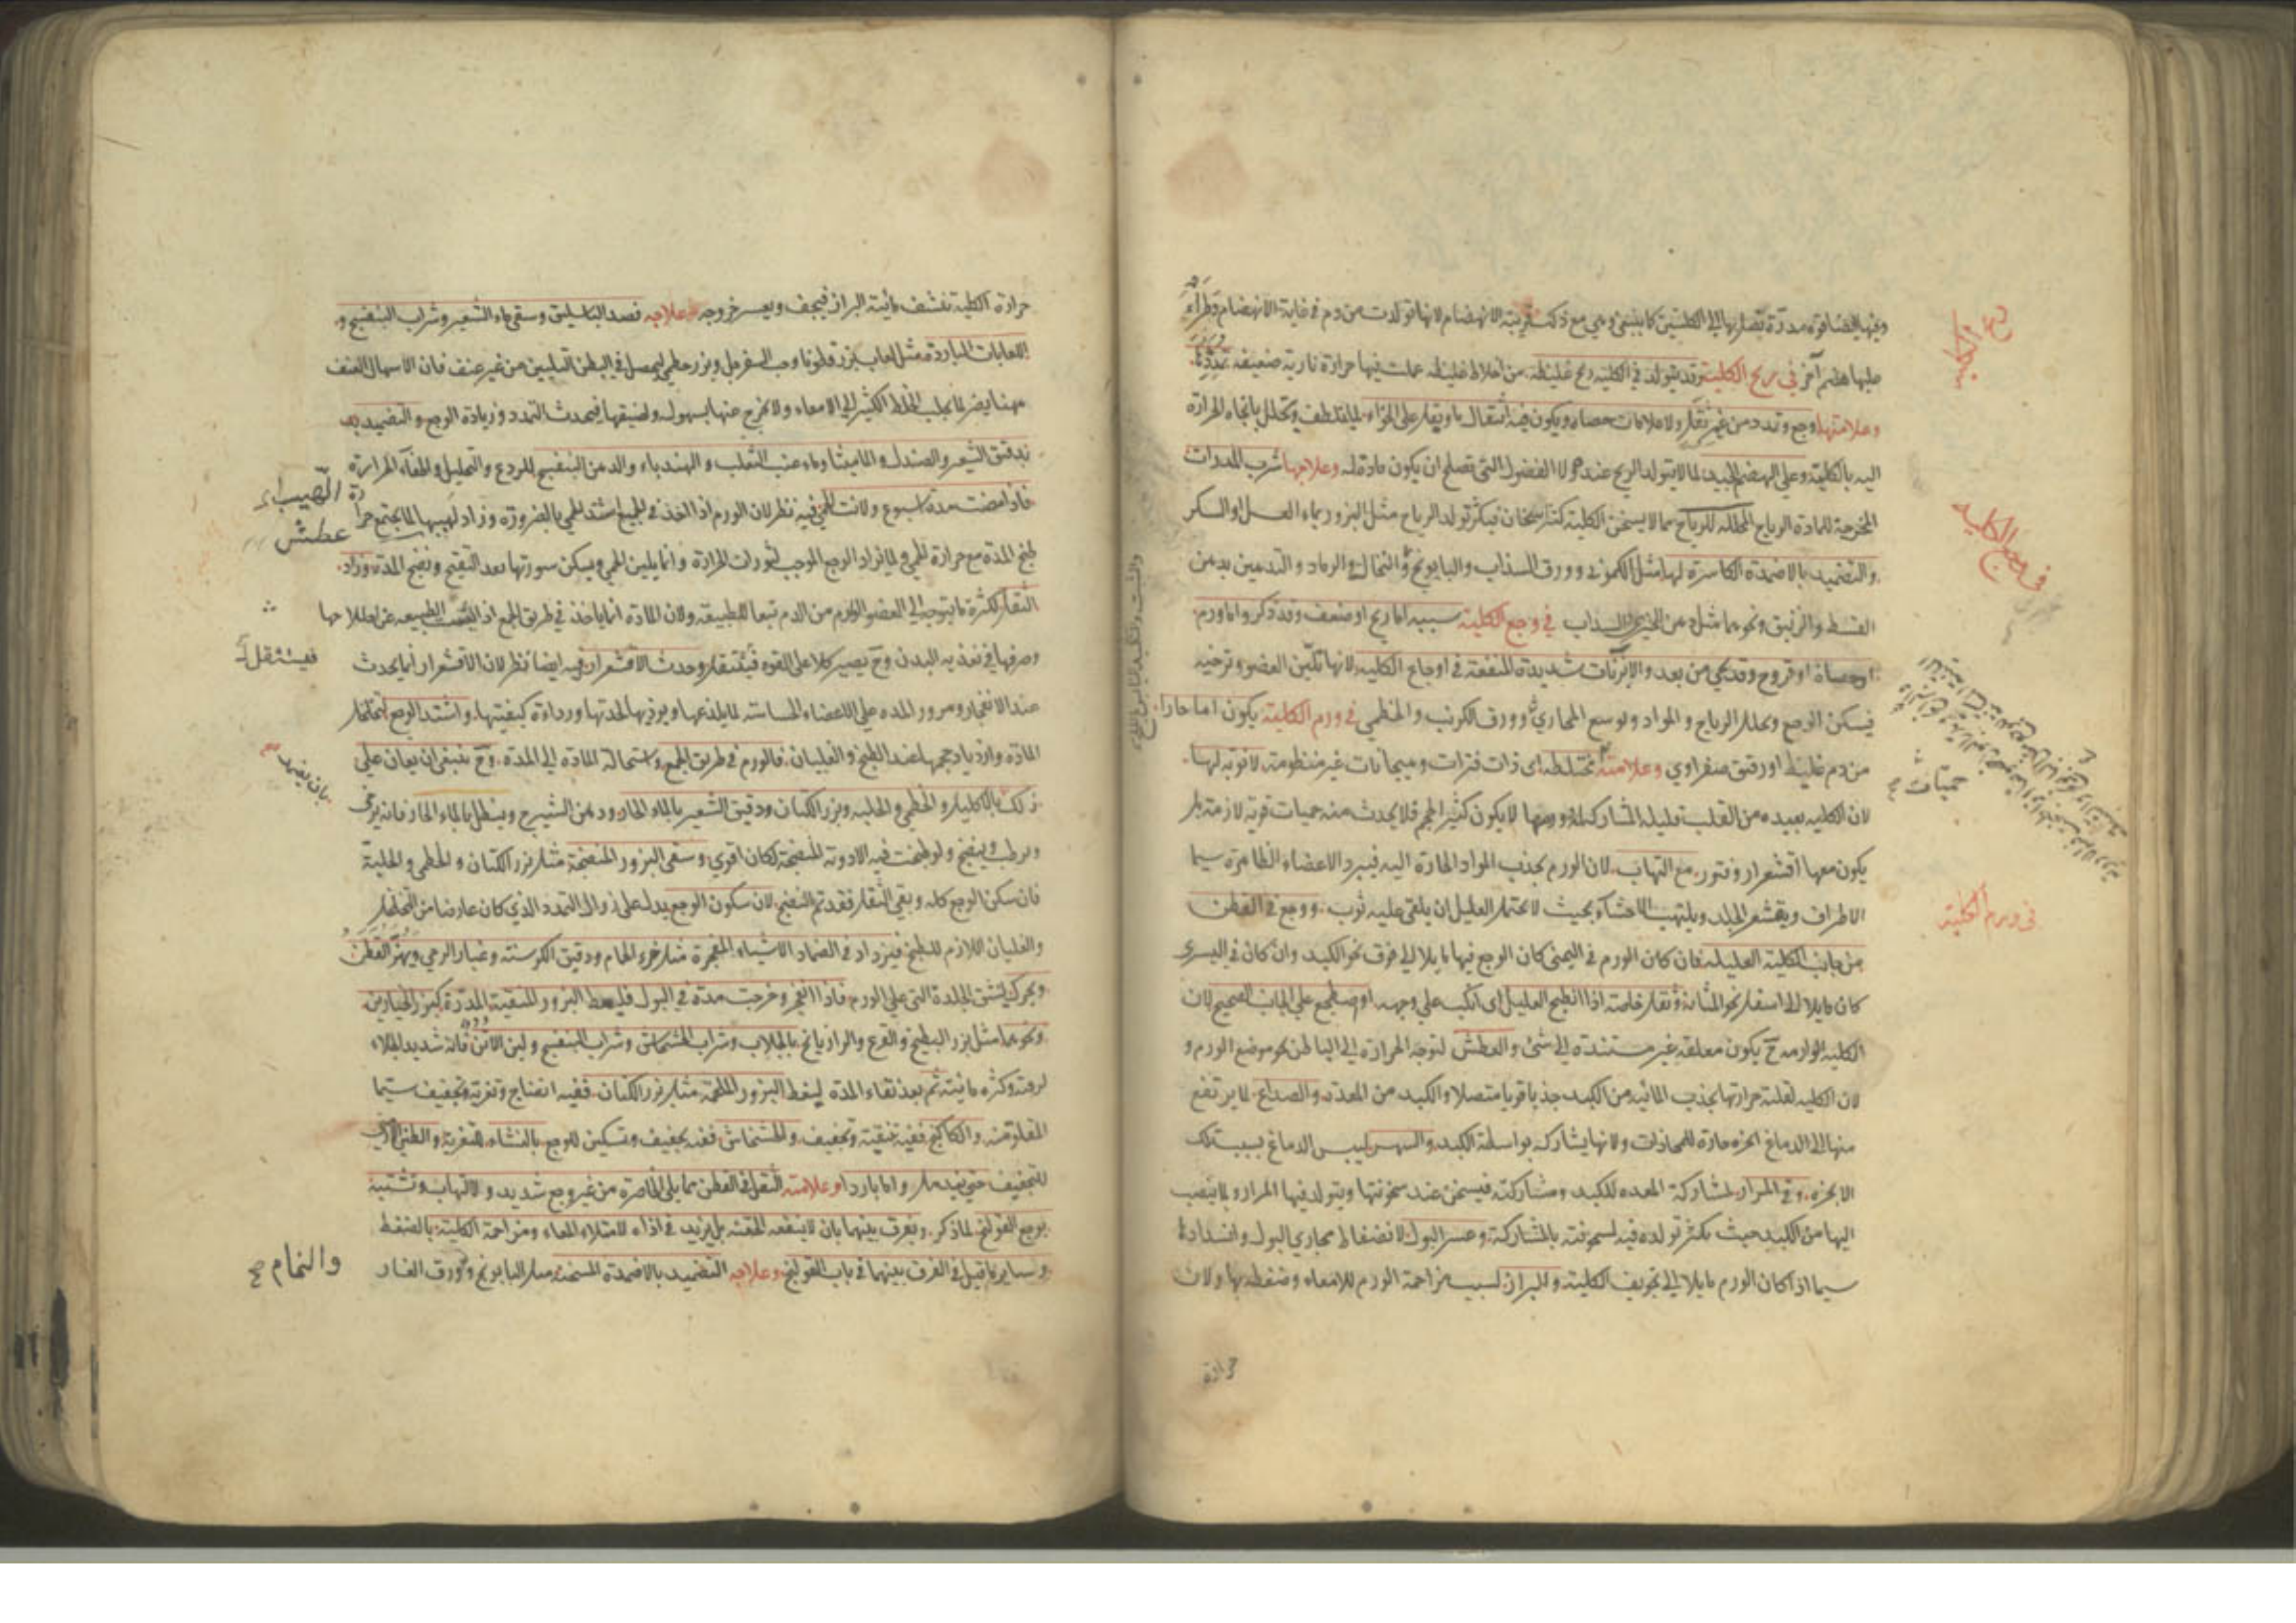 وفيها ايضا قوة مدرة تصل بها الى الكليتين كما ينبغي وهي مع ذلك قريبة الانهضام لانها تولدت من دم في غاية الانهضام وطرأ
عليها هضم آخر في ريح الكلية وقد يتولد في الكلية ريح غليظة من اخلاط غليظة عملت فيها حرارة نارية ضعيفة تمددها
وعلامتها وجع وتمدد من غير ثقل ولا علامات حصاة ويكون فيه انتقال ما ويقل على الخواء لما يتلطف ويتحلل باتجاه الحرارة
اليه بالكلية وعلى الهضم الجيد لما لا يتولد الريح عنده ولا الفضول التي تصلح ان يكون مادة له وعلاجها شرب المدرات
المخرجة للمادة الرياح المحللة للرياح مما لا يسخن الكلية كثير اسخان فيكثر تولد الرياح مثل البزور بماء العسل او السكر
والتضميد بالاضمدة الكاسرة لها مثل الكمون وورق السذاب والبابونج والنخالة والرماد والتدهين بدهن
القسط والزنبق ونحوهما مثل دهن الخيري والسذاب في وجع الكلية سببه اما ريح او ضعف وقد ذكر واما ورم
او حصاة او قروح وقد يجي من بعد والابزنات شديدة المنفعة في اوجاع الكلية لانها تلين العضو وترخيه
فيسكن الوجع ويحلل الرياح والمواد وتوسع المجاري وورق الكرنب والخطمي في ورم الكلية يكون اما حارا
من دم غليظ او رقيق صفراوي وعلامته مختلطة اى ذات فترات وهيجانات غير منظومة لا نوبة لها
لان الكلية بعيدة من القلب قليلة المشاركة له وورمها لا يكون كثير الحجم فلا يحدث منه حميات قوية لازمة بل
يكون معها اقشعرار وفتور مع التهاب لان الورم يجذب المواد الحارة اليه فيبرد الاعضاء الظاهرة سيما
الاطراف ويقشعر الجلد ويلتهب الاحشاء بحيث لا يحتمل العليل ان يلقى عليه ثوب ووجع في القطن
من جانب الكلية العليلة فان كان الورم في اليمنى كان الوجع فيها مايلا الى فوق نحو الكبد وان كان في اليسرى
كان مايلا الى اسفل نحو المثانة وثقل خاصة اذا انبطح العليل اى انكب على وجهه او اضطجع على الجانب الصحيح لان
الكلية الوارمة ح يكون معلقة غير مستندة الى شئ والعطش لتوجه الحرارة الى الباطن نحو موضع الورم و
لان الكلية لغلبة حرارتها يجذب المائية من الكبد جذبا قويا متصلا والكبد من المعدة والصداع لما يرتفع
منها الى الدماغ ابخرة حارة للمحاذات ولانها يشاركه بواسطة الكبد والسهر ليبس الدماغ بسبب تلك
الابخرة وقئ المرار لمشاركة المعدة للكبد ومشاركته فيسخن عند سخونتها ويتولد فيها المرار ولما ينصب
اليها من الكبد حيث يكثر تولده فيه لسخونته بالمشاركة وعسر البول لانضغاط مجاري البول وانسدادها
سيما اذا كان الورم مايلا الى تجويف الكلية والبراز لسبب مزاحمة الورم للامعاء وضغطه بها ولان
حرارة
ريح الكلية
في وجع الكلية
حميات
في ورم الكلية
حرارة الكلية تنشف مائية البراز فيجف ويعسر خروجه وعلاجه فصد الباسليق وسقي ماء الشعير وشراب البنفسج و
اللعابات الباردة مثل لعاب بزرقطونا وحب السفرجل وبزر خطمي ليحصل في البطن التليين من غير عنف فان الاسهال العنف
مهنا يضر لما يجلب الخلط الكثير الى الامعاء ولا يخرج عنها بسهولة ولضيقها فيحدث التمدد وزيادة الوجع والتضميد به
بدقيق الشعير والصندل والماميثا وماء عنب الثعلب والهندباء والدهن البنفسج للردع والتحليل واطفاء الحرارة
فاذا مضت مدة اسبوع ولانت الحمى فيه نظر لان الورم اذا اخذ في الجمع اشتد الحمى بالضرورة وزاد لهيبها لما يجتمع حرارة
طبخ المدة مع حرارة الحمى ولما يزداد الوجع الموجب لثوران الحرارة وانما يلين الحمى ويسكن سورتها بعد التقيح ونضج المدة وزاد
الثقل لكثرة ما يتوجه الى العضو الوارم من الدم تبعا للطبيعة ولان المادة انما ياخذ في طريق الجمع اذا ايئست الطبيعة عن اصلاحها
وصرفها في تغذية البدن وح يصير كلا على القوة فتستثقل وحدث الاقشعرار فيه ايضا نظر لان الاقشعرار انما يحدث
عند الانفجار ومرور المدة على الاعضاء الحساسة لما يلذعها ويوذيها لحدتها ورداءة كيفيتها واشتد الوجع لتخلخل
المادة وازدياد حجمها عند الطبخ والغليان فالورم في طريق الجمع واستحالة المادة الى المدة وح ينبغي ان يعان على
ذلك بالاكليل والخطمي والحلبة وبزر الكتان ودقيق الشعير بالماء الحار ودهن الشيرج وينطل بالماء الحار فانه يرخى
ويرطب وينضج ولو طبخت فيه الادوية المنضجة لكان اقوى وسقى البزور المنضجة مثل بزر الكتان والخطمى والحلبة
فان سكن الوجع كله وبقى الثقل فقد تم النضج لان سكون الوجع يدل على زوال التمدد الذي كان عارضا من التخلخل
والغليان اللازم للطبخ فيزداد في الضماد الاشياء المفجرة مثل خرء الحمام ودقيق الكرسنة وغبار الرحى ويهز القطن
ويحرك ليشق الجلدة التي على الورم فاذا انفجر وخرجت مدة في البول فليعط البزور المنقية المدرة كبزر الخيارين
ونحوهما مثل بزر البطيخ والقرع والرازيانج بالجلاب وشراب الخشخاش وشراب البنفسج ولبن الاتن فانه شديد الجلاء
لرقته وكثرة مائيته ثم بعد نقاء المدة ليعط البزور الملحمة مثل بزر الكتان ففيه انضاج وتغرية وتجفيف سيما
المقلو منه والكاكنج ففيه تنقية وتجفيف والخشخاش ففيه تجفيف وتسكين للوجع بالنشاء للتغرية والطين الارمنى
للتجفيف حتى يندمل واما باردا وعلامته الثقل في القطن مما يلي الخاصرة من غير وجع شديد ولا التهاب وتشتبه
بوجع القولنج لما ذكر ويفرق بينهما بان لا ينفعه الحقنة بل يزيد في اذاه لامتلاء المعاء ومزاحمة الكلية بالضغط
وساير ما قيل في الفرق بينهما في باب القولنج وعلاجه التضميد بالاضمدة المسخنة مثل البابونج وورق الغار
عطش
فيستثقل
والنمام صح